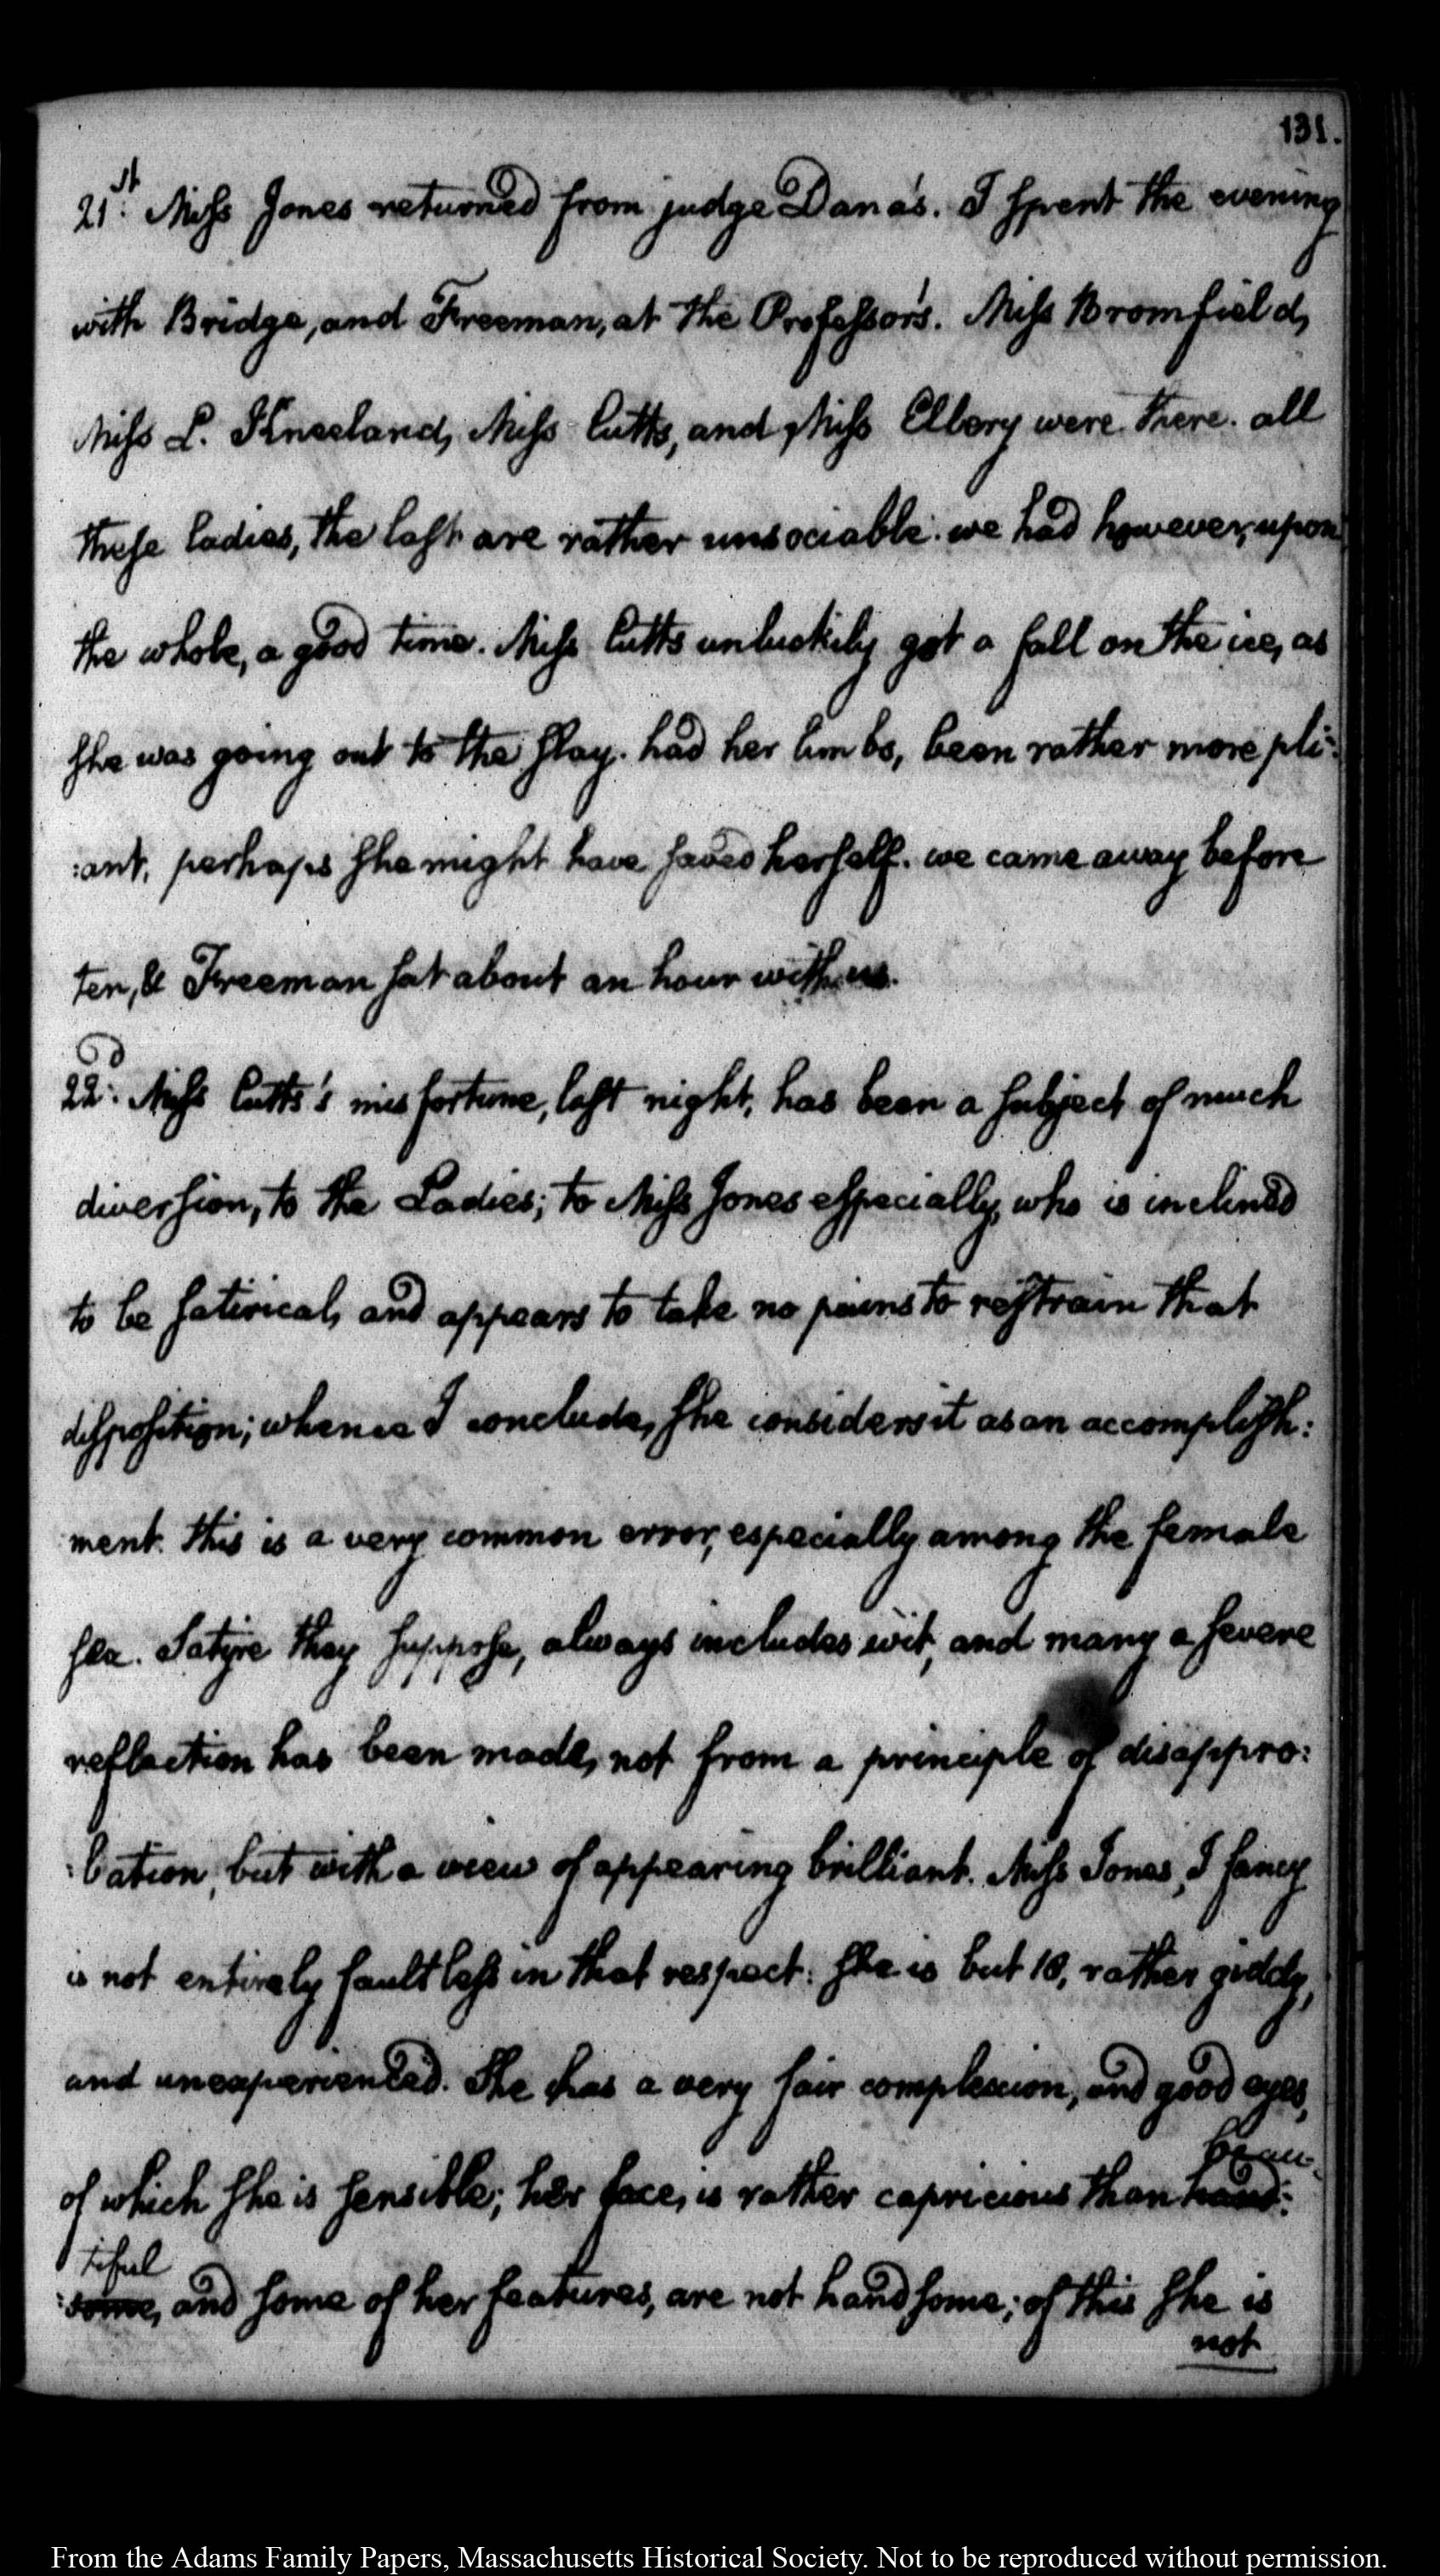 131.
21.st Miss Jones returned from judge Dana's. I spent the evening
with Bridge, and Freeman, at the Professor's. Miss Bromfield,
Miss L. Kneeland, Miss Cutts, and Miss Ellery were there. all
these ladies, the last are rather unsociable: we had however, upon
the whole, a good time. Miss Cutts unluckily got a fall on the ice, as
she was going out to the slay. had her limbs, been rather more pli:
:ant, perhaps she might have saved herself. we came away before
ten, & Freeman sat about an hour with us.
22:d Miss Cutts's misfortune, last night, has been a subject of much
diversion, to the Ladies; to Miss Jones especially, who is inclined
to be satirical, and appears to take no pains to restrain that
disposition; whence I conclude, she considers it as an accomplish:
ment. this is a very common error, especially among the female
sex. Satyre they suppose, always includes wit, and many a severe
reflection has been made, not from a principle of disappro:
:bation, but with a view of appearing brilliant. Miss Jones, I fancy
is not entirely faultless in that respect: she is but 18, rather giddy,
and unexperienced. She has a very fair complexion, and good eyes,
beau-
of which she is sensible; her face, is rather capricious than hand:
tiful
:some, and some of her features, are not handsome; of this she is
not
From the Adams Family Papers, Massachusetts Historical Society. Not to be reproduced without permission.